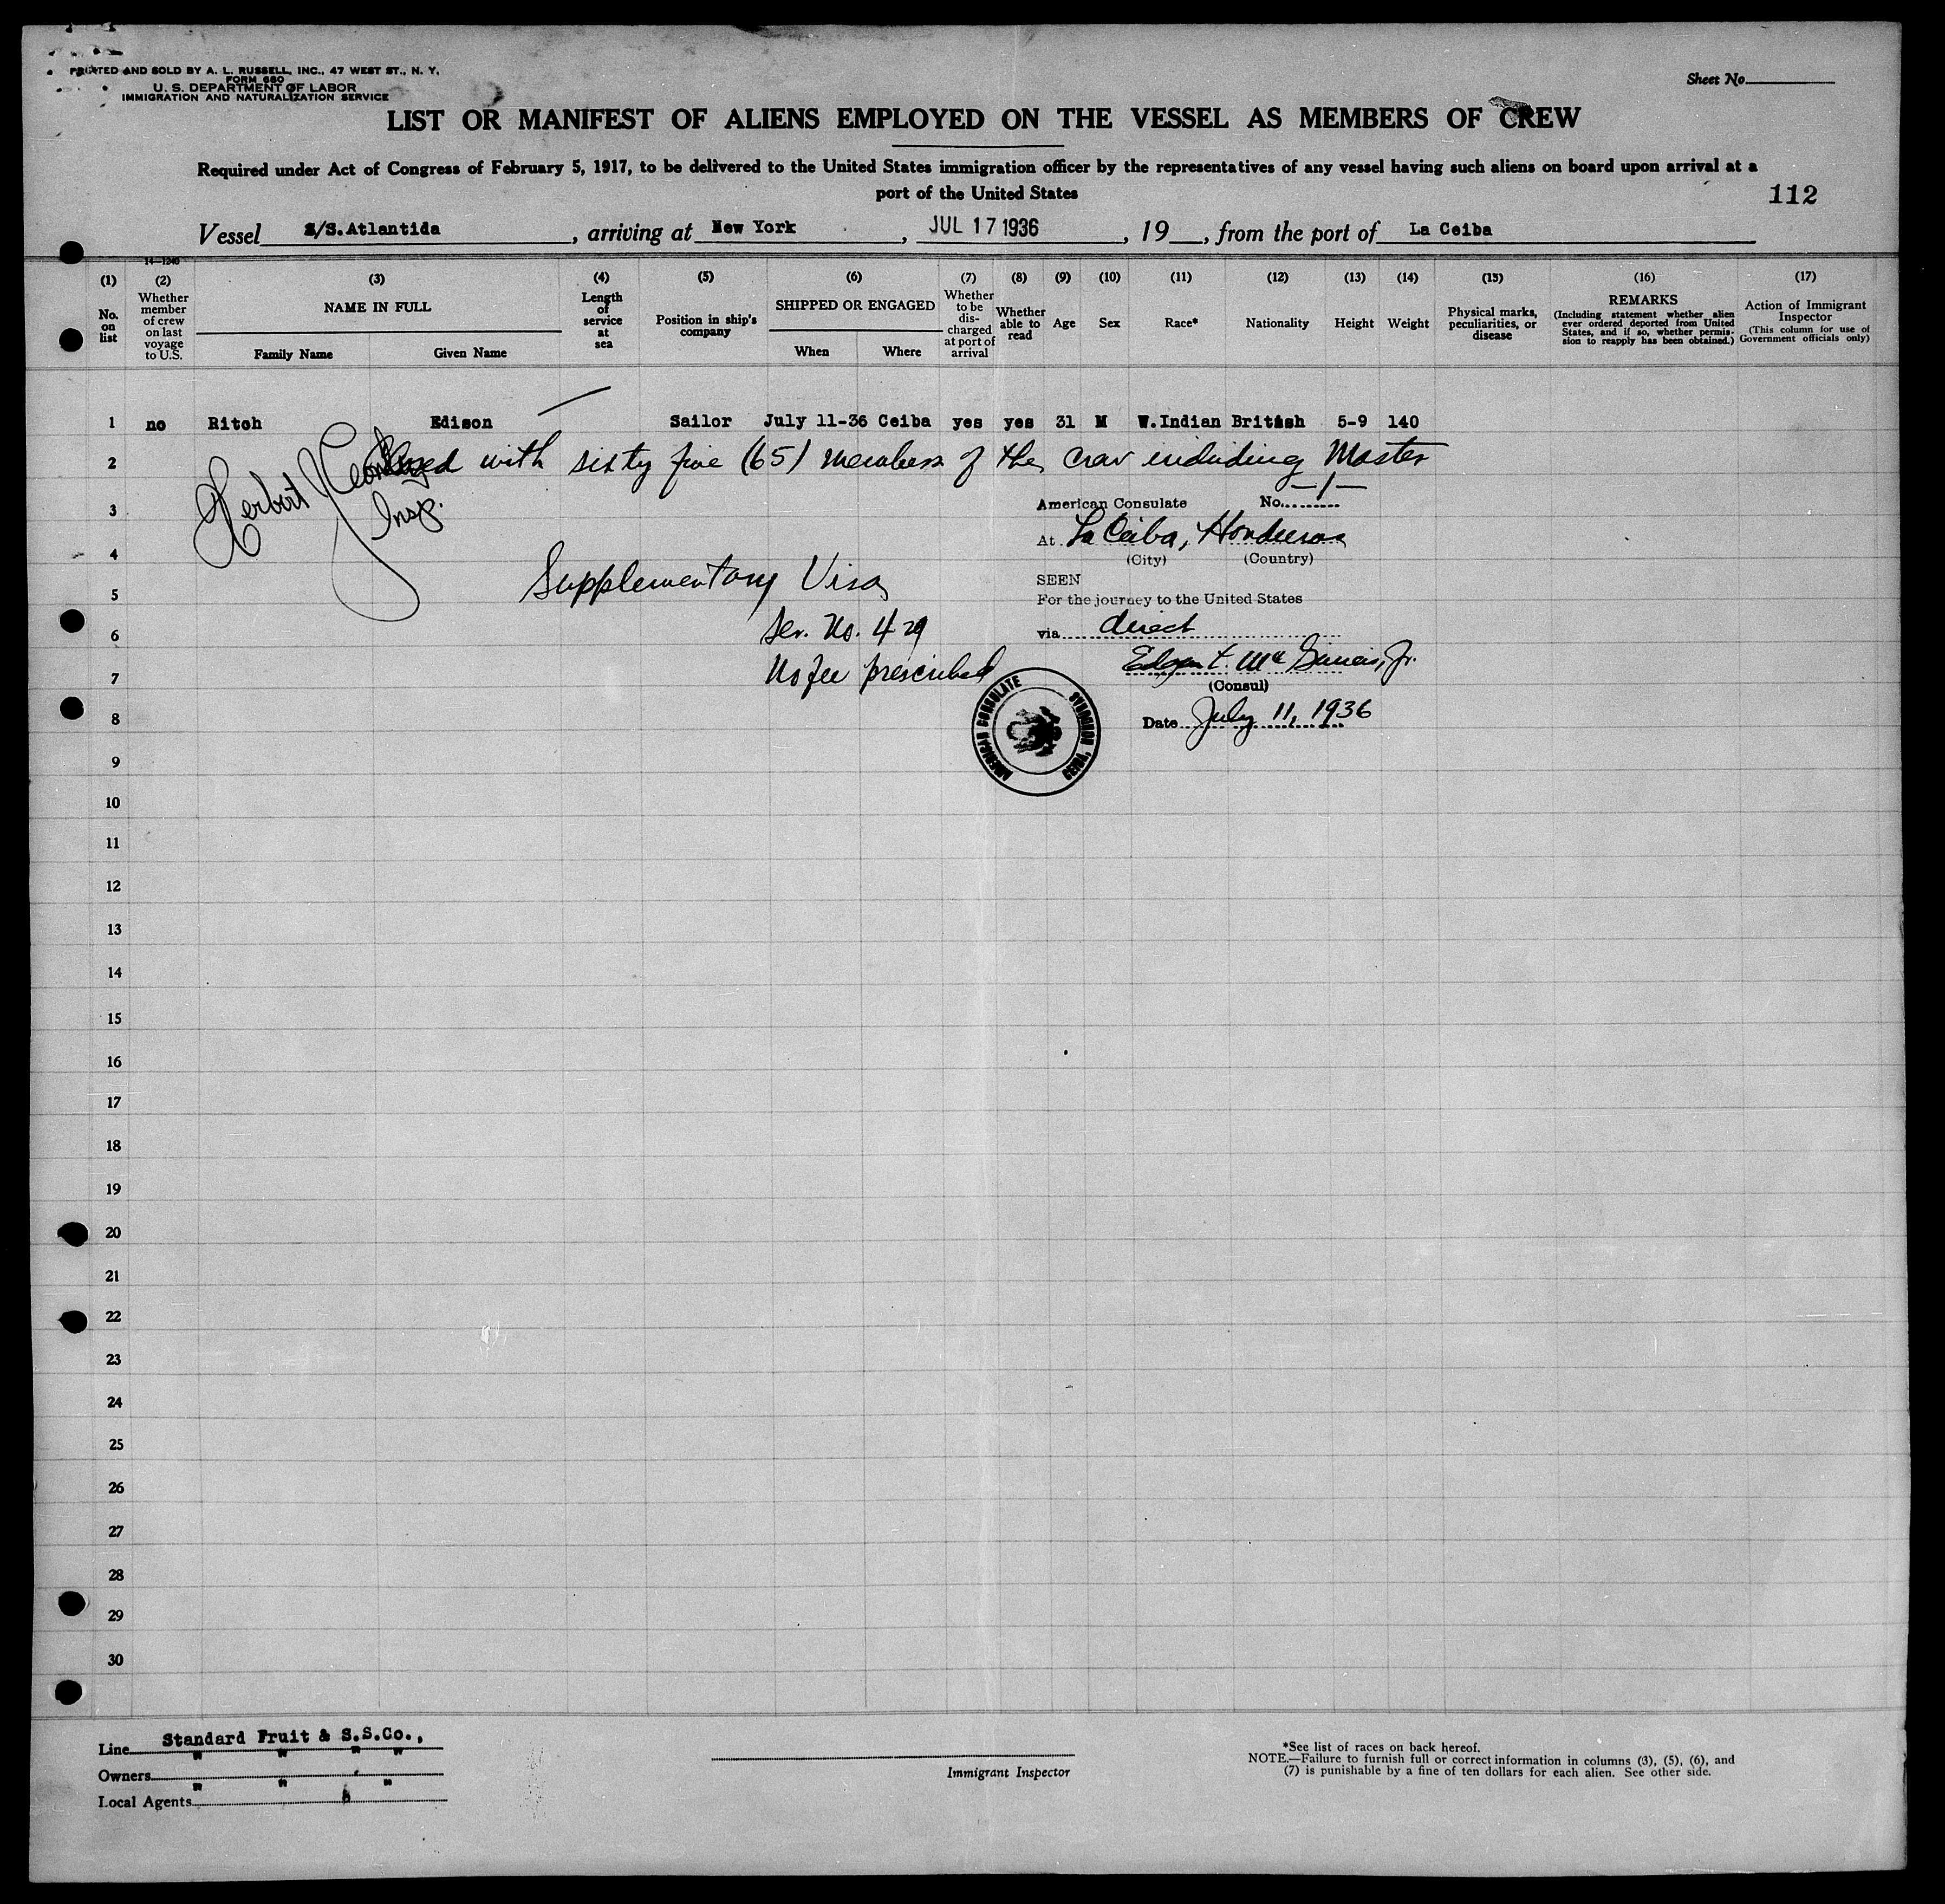 PRINTED AND SOLD BY A. L. RUSSELL, INC., 47 WEST ST., N. Y.
FORM 680
U. S. DEPARTMENT OF LABOR
IMMIGRATION AND NATURALIZATION SERVICE
Sheet No.
LIST OR MANIFEST OF ALIENS EMPLOYED ON THE VESSEL AS MEMBERS OF CREW
Required under Act of Congress of February 5, 1917, to be delivered to the United States immigration officer by the representatives of any vessel having such aliens on board upon arrival at a
port of the United States
112
Vessel S/S.Atlantida, arriving at New York, JUL 17 1936, 19__, from the port of La Ceiba
14—1240
(1) (2) (3) (4) (5) (6) (7) (8) (9) (10) (11) (12) (13) (14) (15) (16) (17)
No. on list
Whether member of crew on last voyage to U.S.
NAME IN FULL
Family Name Given Name
Length of service at sea
Position in ship's company
SHIPPED OR ENGAGED
When Where
Whether to be discharged at port of arrival
Whether able to read
Age
Sex
Race*
Nationality
Height
Weight
Physical marks, peculiarities, or disease
REMARKS
(Including statement whether alien ever ordered deported from United States, and if so, whether permission to reapply has been obtained.)
Action of Immigrant Inspector
(This column for use of Government officials only)
1 no Ritch Edison Sailor July 11-36 Ceiba yes yes 31 M W.Indian British 5-9 140
2 Closed with sixty five (65) members of the crew including Master
Herbert
Insp.
3 American Consulate No. -1-
At La Ceiba, Honduras
4 (City) (Country)
Supplementary Visa
SEEN
5 For the journey to the United States
6 Ser. No. 429 via direct
7 No fee prescribed
Edgar L. Jr.
(Consul)
8 Date July 11, 1936
AMERICAN CONSULATE
9
10
11
12
13
14
15
16
17
18
19
20
21
22
23
24
25
26
27
28
29
30
Line Standard Fruit & S.S.Co.,
Owners " " " "
Local Agents " " "
Immigrant Inspector
*See list of races on back hereof.
NOTE.—Failure to furnish full or correct information in columns (3), (5), (6), and
(7) is punishable by a fine of ten dollars for each alien. See other side.